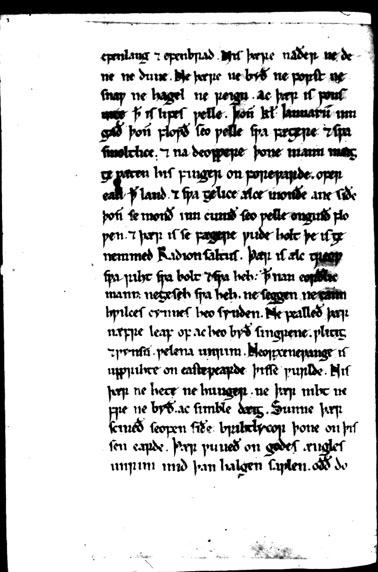 efenlang ⁊ efenbrad. Nis þære nader ne de
ne ne dune. Ne þære ne byð ne forst ne
snaƿ ne hagel ne reign. ac þær is fons
uite þ̄ is lifes ƿelle. þon̄ kl̄ Ianuarii inn
gað þon̄ floƿð seo ƿelle sƿa fægere ⁊ sƿa
smoltlice. ⁊ na deoppere þone mann mæig
geƿæten his finger on foreƿarde. ofer
eall þ̄ land. ⁊ sƿa gelice ælce monðe ane siðe
þon̄ se monð inn cumð seo ƿelle onginð flo
ƿen. ⁊ þær is se fægere ƿude holt þe is ge
nemned Radion saltus. Þær is ælc treoƿ
sƿa riht sƿa bolt ⁊ sƿa heh. þ̄ nan eorðlic
mann ne geseh sƿa heh. ne seggen ne cann
hƿilces cynnes heo synden. Ne fealleð þær
næfre leaf of. ac heo byð singrene. ƿlitig
⁊ ƿynsū. ƿelena unrim. Neorxeneƿange is
upprihte on easteƿearde þisse ƿurlde. Nis
þær ne hete ne hunger. ne þær niht ne
fre ne byð. ac simble dæig. Sunne þær
scineð seofen siðe brihtlycor þone on þis
sen earde. Þær ƿuneð on godes ængles
unrim mid þan halgen saƿlen. oðð do